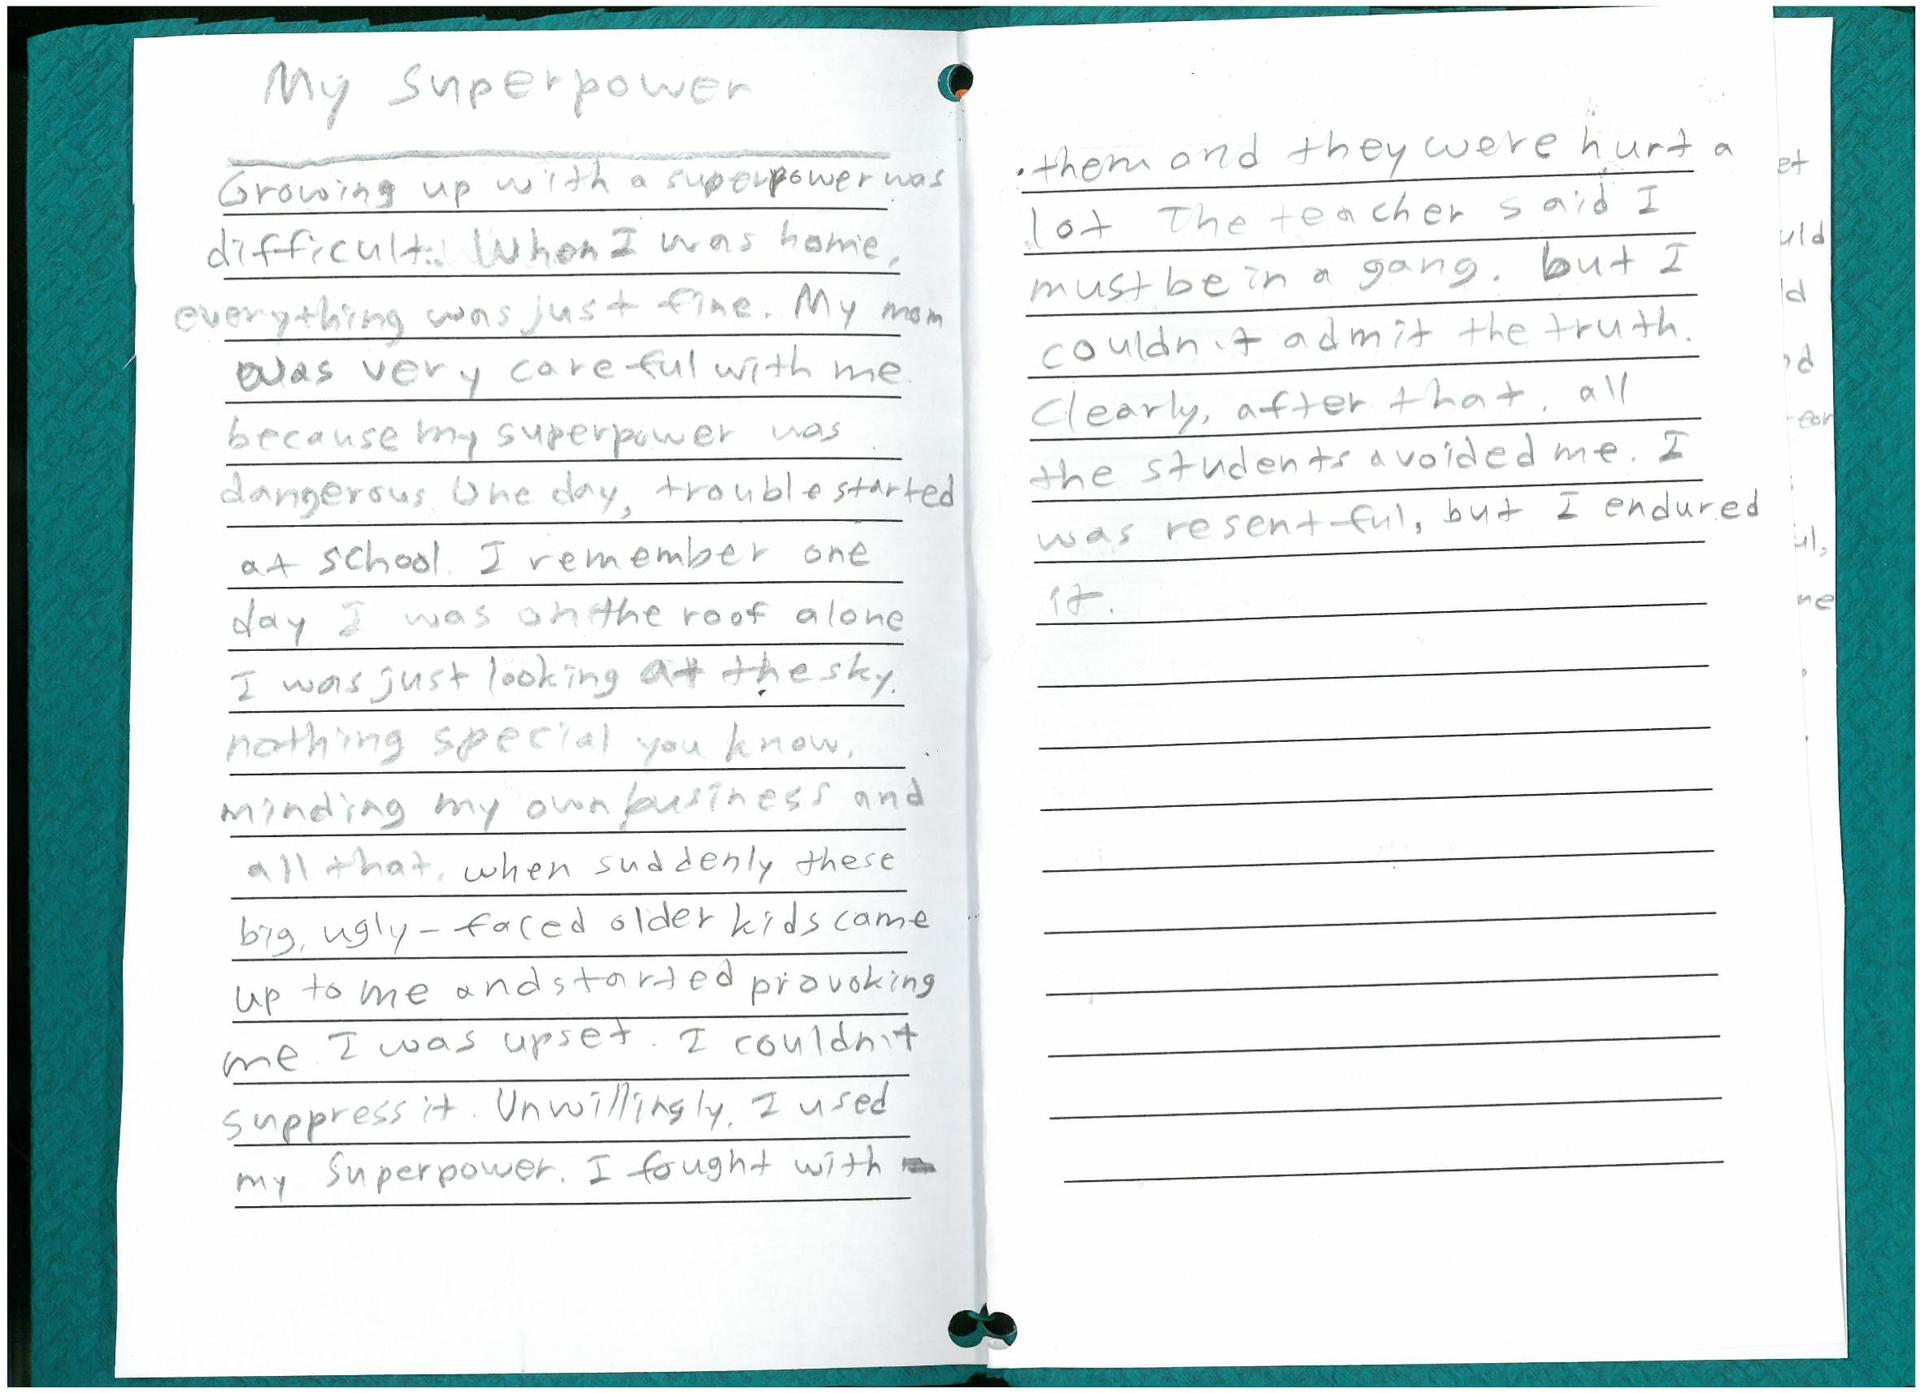 My Superpower
Growing up with a superpower was
difficult. When I was home,
everything was just fine. My mom
was very careful with me
because my superpower was
dangerous. One day, trouble started
at school. I remember one
day I was on the roof alone
I was just looking at the sky.
nothing special you know,
minding my own business and
all that, when suddenly these
big, ugly-faced older kids came
up to me and started provoking
me. I was upset. I couldn't
suppress it. Unwillingly, I used
my superpower. I fought with
them and they were hurt a
lot The teacher said I
must be in a gang. but I
couldn't admit the truth.
Clearly, after that, all
the students avoided me. I
was resentful, but I endured
it.
et
uld
d
d
ear
ul,
ne